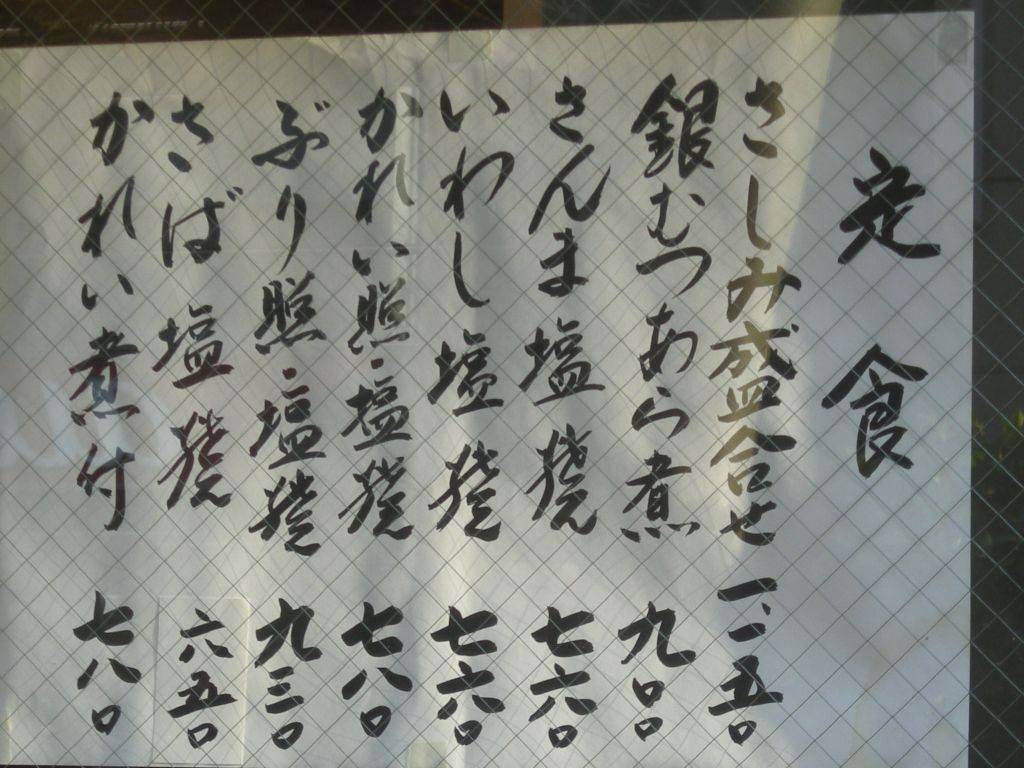 定食
さしみ盛合せ 一、一五〇
銀むつあら煮 九〇〇
さんま塩焼 七六〇
いわし塩焼 七六〇
かれい照・塩焼 七八〇
ぶり照・塩焼 九三〇
さば塩焼 六五〇
かれい煮付 七八〇